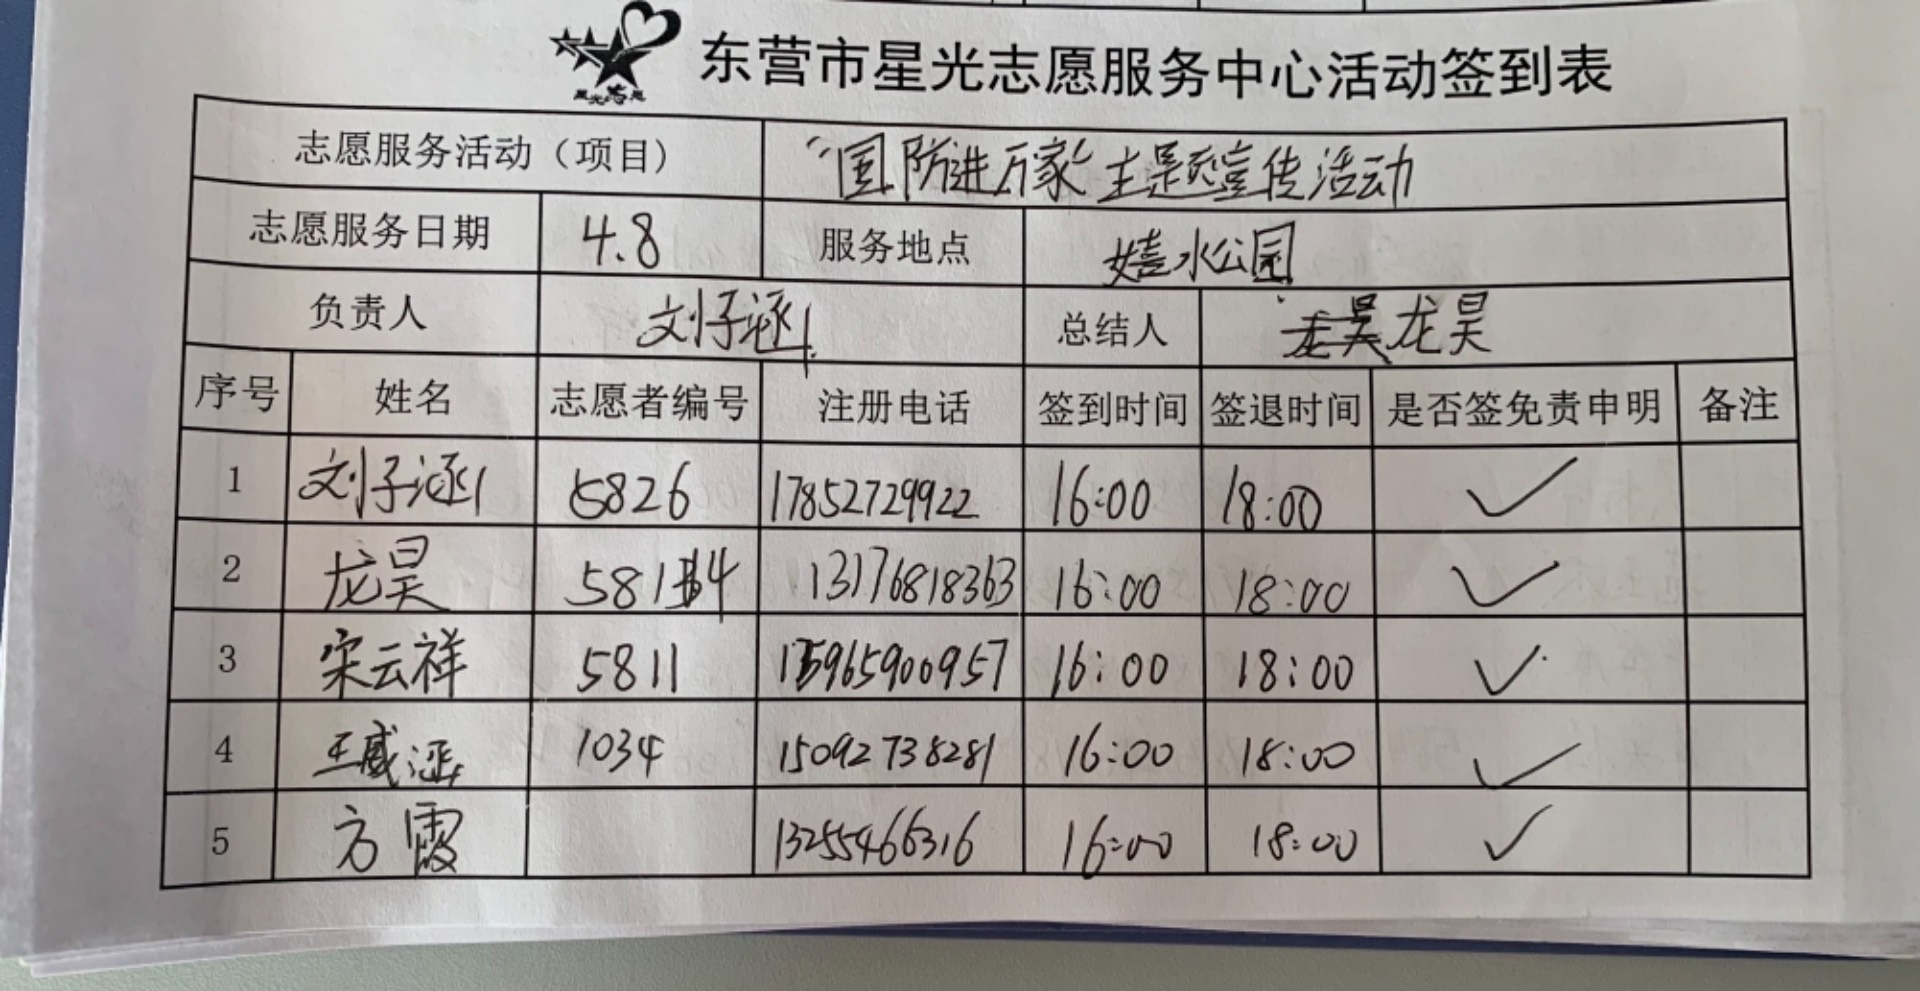 星光志愿
东营市星光志愿服务中心活动签到表
志愿服务活动（项目） “国防进万家”主题宣传活动
志愿服务日期 4.8 服务地点 嬉水公园
负责人 刘子涵 总结人 龙昊
序号 姓名 志愿者编号 注册电话 签到时间 签退时间 是否签免责申明 备注
1 刘子涵 5826 17852729922 16:00 18:00 ✓
2 龙昊 5814 13176818363 16:00 18:00 ✓
3 宋云祥 5811 16:00 18:00 ✓
4 1034 15092738281 16:00 18:00 ✓
5 方霞 13255466316 16:00 18:00 ✓